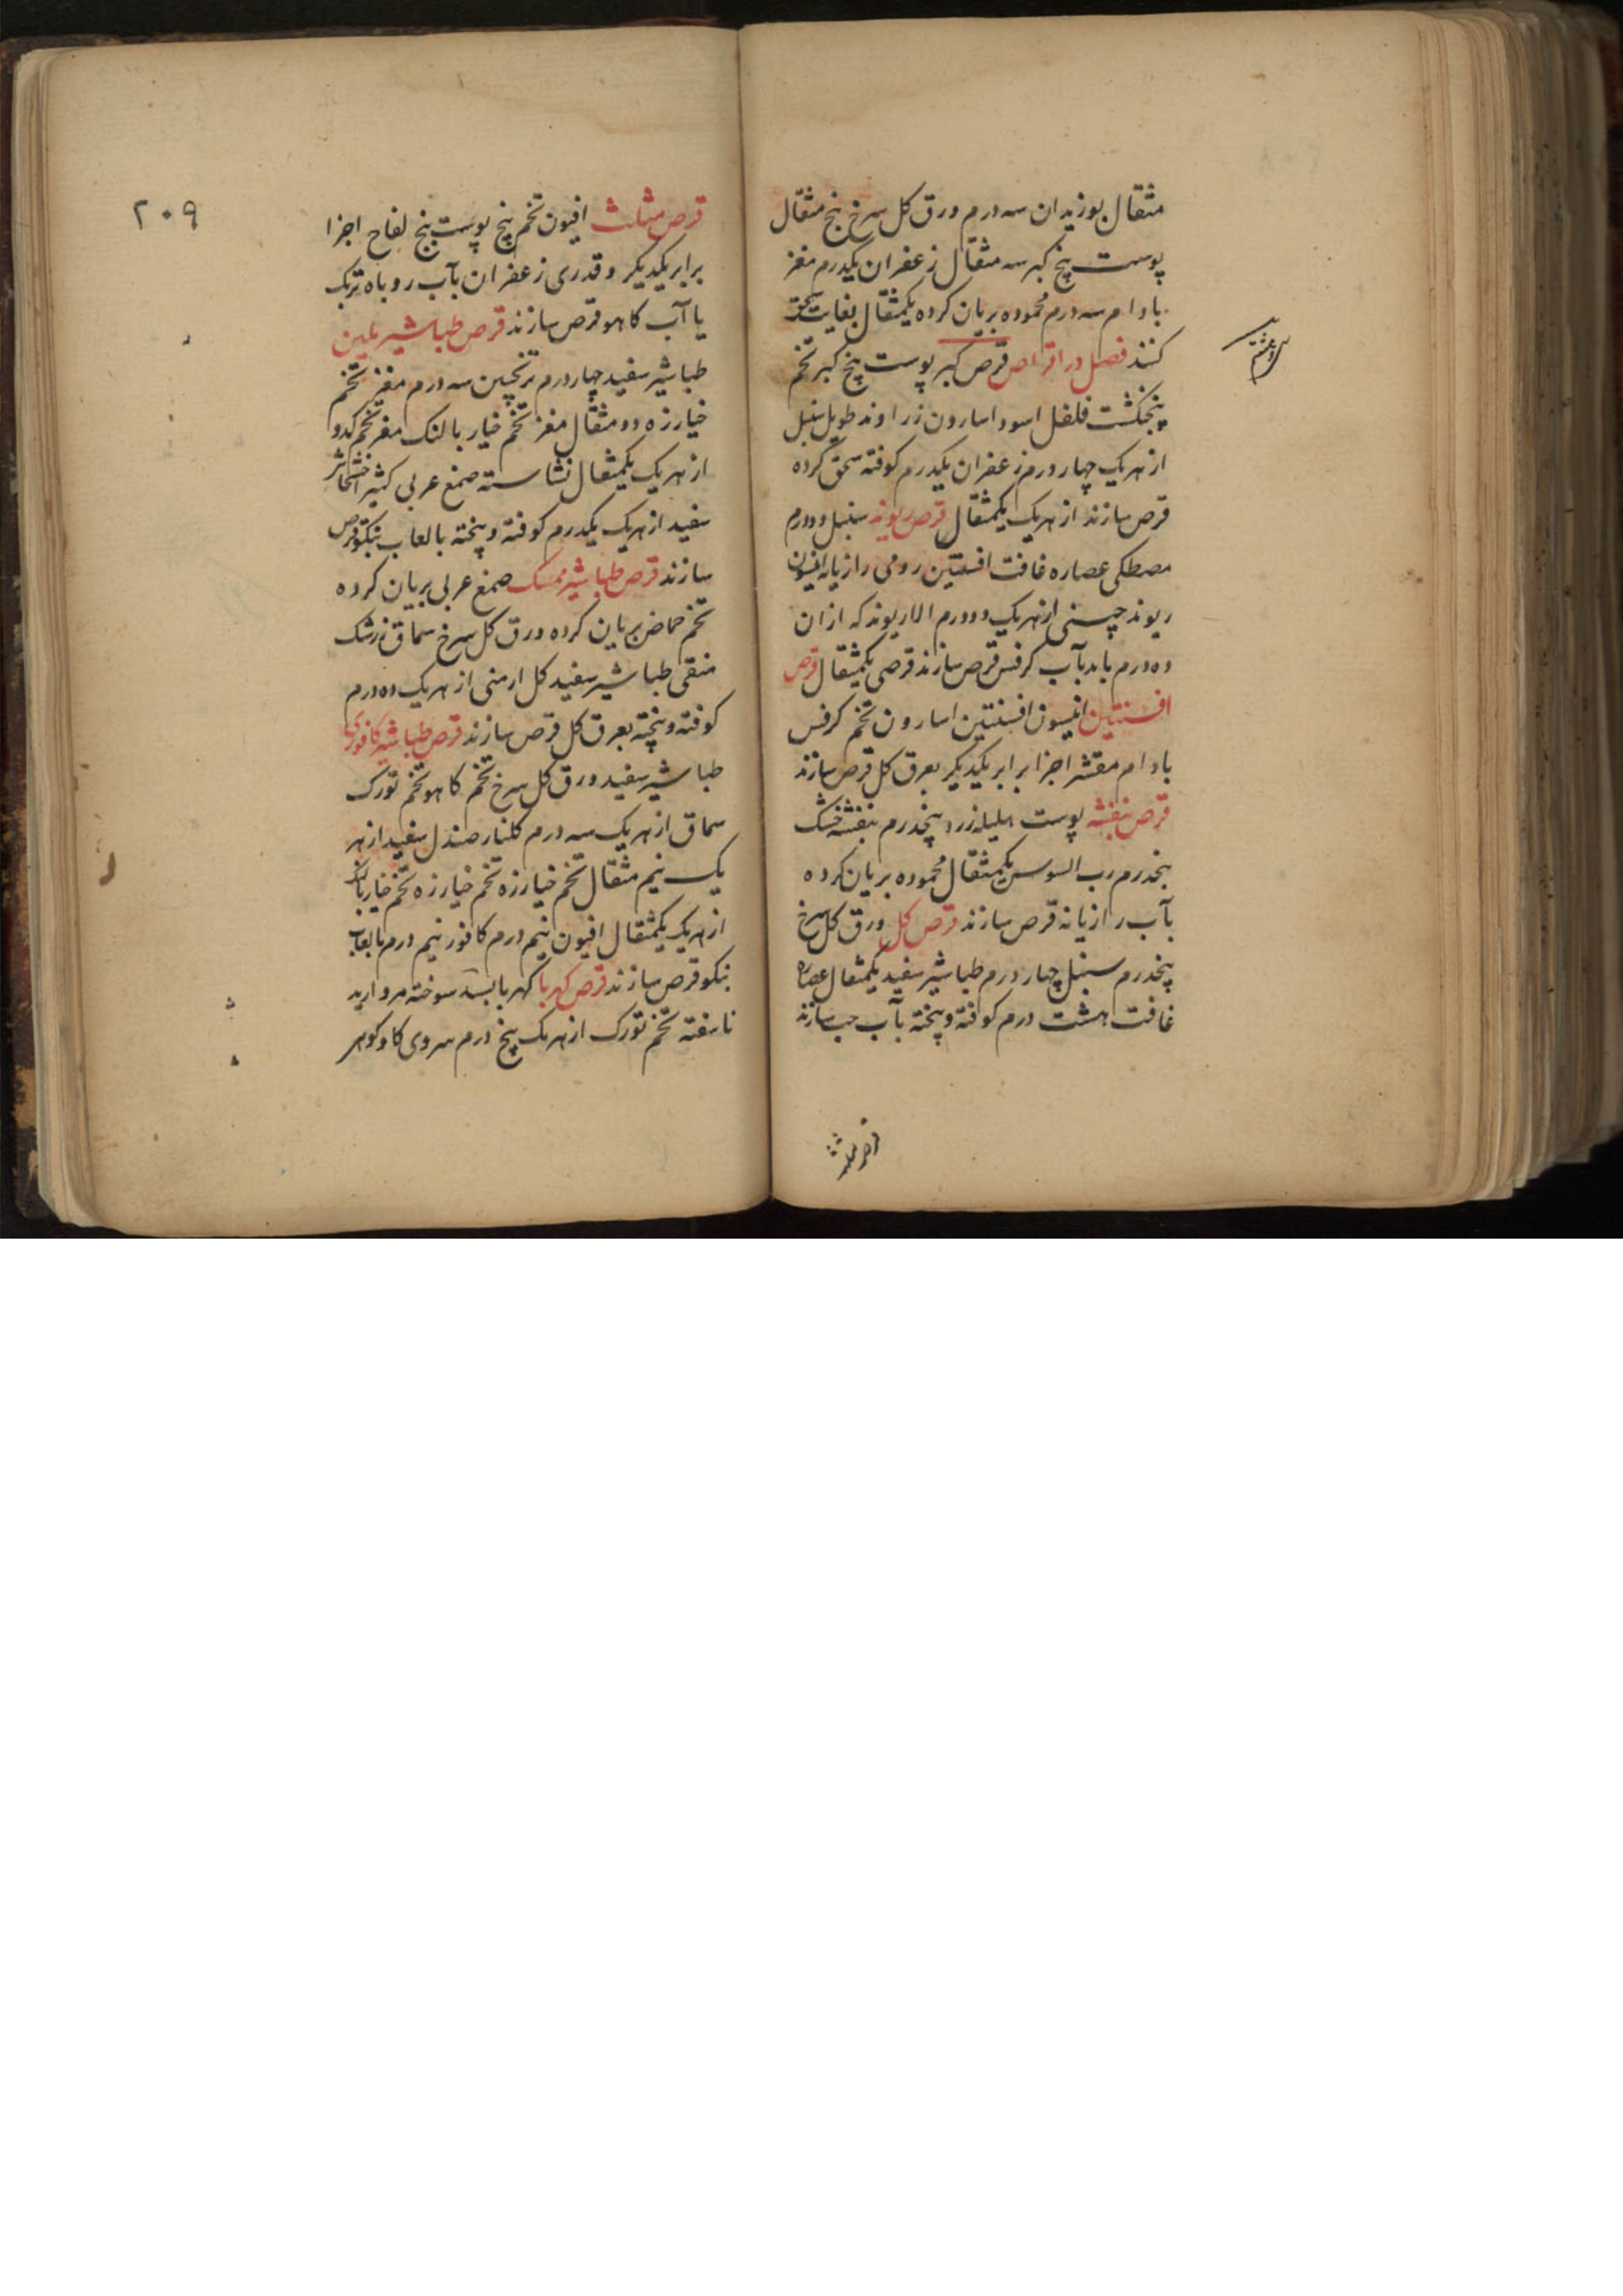 مثقال بوزیدان سه درم ورق کل سرخ پنج مثقال
پوست پنج کبر سه مثقال زعفران یکدرم مغز
بادام سه درم محموده بریان کرده یکمثقال بغایت سحق
کنند فصل در اقراص قرص کبر پوست پنج کبر تخم
پنجنکشت فلفل اسود اسارون زراوند طویل سنبل
از هر یک چهار درم زعفران یکدرم کوفته سحق کرده
قرص سازند از هر یک یکمثقال قرص ریوند سنبل دو درم
مصطکی عصاره غافت افسنتین رومی رازیانه انیسون
ریوند چینی از هر یک دو درم الا ریوند که از ان
ده درم باید بآب کرفس قرص سازند قرصی یکمثقال قرص
افسنتین انیسون افسنتین اسارون تخم کرفس
بادام مقشر اجزا برابر یکدیکر بعرق کل قرص سازند
قرص بنفشه پوست هلیله زرد پنجدرم بنفشه خشک
پنجدرم رب السوس یکمثقال محموده بریان کرده
بآب رازیانه قرص سازند قرص کل ورق کل سرخ
پنجدرم سنبل چهار درم طباشیر سفید یکمثقال عصاره
غافت هشت درم کوفته و پخته بآب حب سازند
۲۰۹
قرص مثلث افیون تخم پنج پوست پنج لفاح اجزا
برابر یکدیکر و قدری زعفران بآب روباه تربک
یا آب کاهو قرص سازند قرص طباشیر ملین
طباشیر سفید چهار درم ترنجبین سه درم مغز تخم
خیارزه دو مثقال مغز تخم خیار بالنک مغز تخم کدو
از هر یک یکمثقال نشاسته صمغ عربی کثیرا خشخاش
سفید از هر یک یکدرم کوفته و پخته بالعاب بنکو قرص
سازند قرص طباشیر ممسک صمغ عربی بریان کرده
تخم حماض بریان کرده ورق کل سرخ سماق زرشک
منقی طباشیر سفید کل ارمنی از هر یک ده درم
کوفته و پخته بعرق کل قرص سازند قرص طباشیر کافوری
طباشیر سفید ورق کل سرخ تخم کاهو تخم تورک
سماق از هر یک سه درم کلنار صندل سفید از هر
یک نیم مثقال تخم خیارزه تخم خیارزه تخم خیار بالنک
از هر یک یکمثقال افیون نیم درم کافور نیم درم بالعاب
بنکو قرص سازند قرص کهربا کهربا بسد سوخته مروارید
ناسفته تخم تورک از هر یک پنج درم سروی کاو کوهر